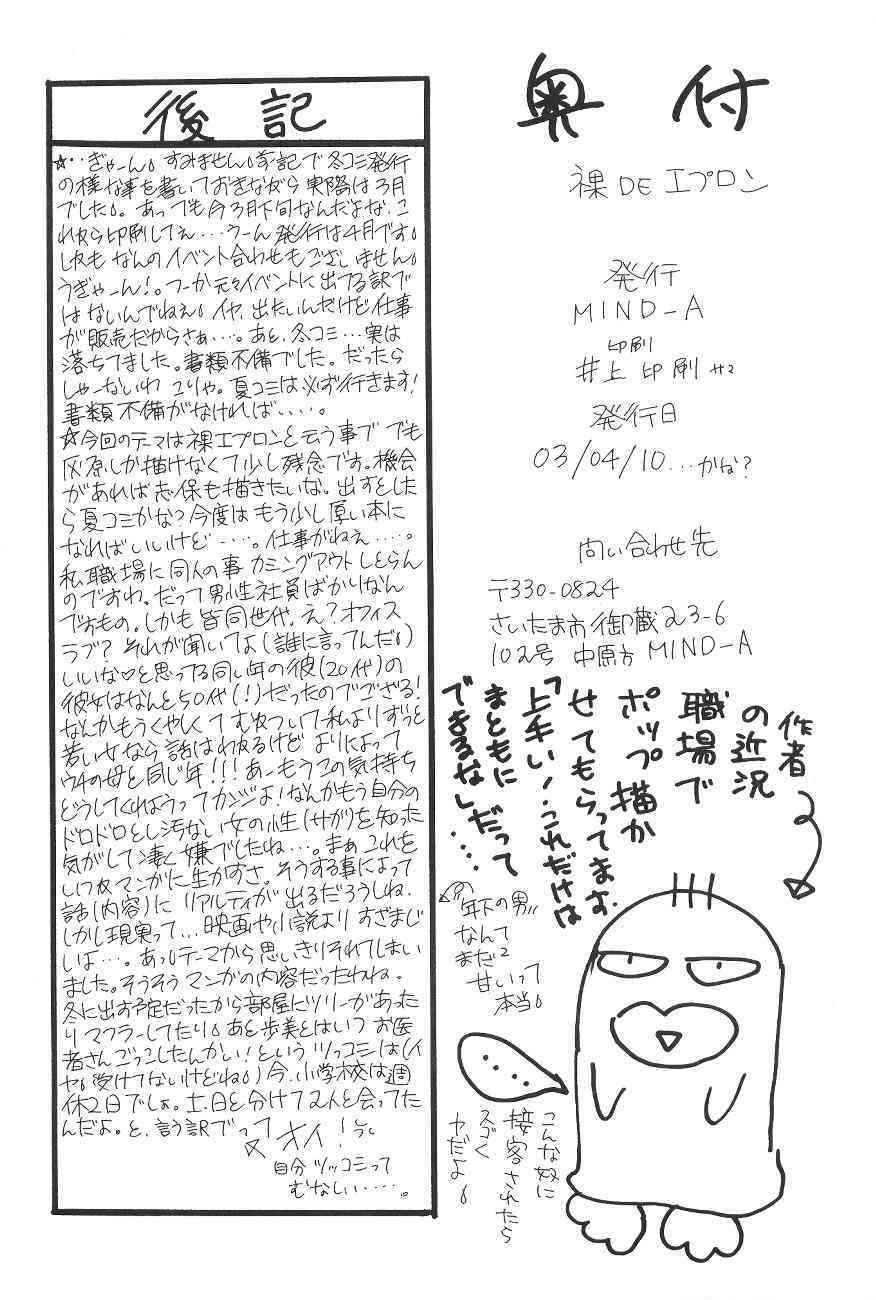 後記
☆‥ぎゃーん。すみません。前記で冬コミ発行
の様な事を書いておきながら実際は3月
でした。あっでも今3月下旬なんだよな、こ
れから印刷してぇ…うーん発行は4月です。
しかもなんのイベント合わせもございません。
うぎゃーん!。つーか元々イベントに出てる訳で
はないんでねぇ。イヤ、出たいんだけど仕事
が販売だからさぁ…。あと、冬コミ…実は
落ちてました。書類不備でした。だったら
しゃーないわ こりゃ。夏コミは必ず行きます!
書類不備がなければ‥‥。
☆今回のテーマは裸エプロンと云う事で でも
灰原しか描けなくて少し残念です。機会
があれば志保も描きたいな。出すとした
ら夏コミかな?今度はもう少し厚い本に
なればいいけど…。仕事がねぇ…。
私、職場に同人の事カミングアウトしとらん
のですわ、だって男性社員ばかりなん
でおもの。しかも皆同世代。え?オフィス
ラブ? それが聞いてよ(誰に言ってんだ。)
いいな♡と思ってる同い年の彼(20代)の
彼女はなんと50代(!)だったのでござる!
なんかもうくやしくてむかついて私よりずっと
若い女なら話はわかるけど よりによって
ウチの母と同じ年!!!あーもうこの気持ち
どうしてくれようってカンジよ!なんかもう自分の
ドロドロとし汚ない女の性(サガ)を知った
気がして凄く嫌でしたね…。まぁこれを
しっかマンガに生かすさ。そうする事によって
話(内容)にリアルティが出るだろうしね。
しかし現実って…映画や小説よりすざまじ
いよ…。あっ。テーマから思いきりそれてしまい
ました。そうそうマンガの内容だったわね。
冬に出す予定だったから部屋にツリーがあった
りマフラーしてたり。あと歩美とはいつお医
者さんごっこしたんかい!というツッコミは(イ
ヤ。受けてないけどね。)今、小学校は週
休2日でしょ。土、日と分けて2人と会ってた
んだよ。と、言う訳でって
オイ!
自分ツッコミって
むなしい‥‥。
奥付
裸DEエプロン
発行
MIND-A
印刷
井上印刷サマ
発行日
03/04/10…かな?
問い合わせ先
〒330-0824
さいたま市御蔵23-6
102号 中原方 MIND-A
作者
の近況
職場で
ポップ描か
せてもらってます。
「上手い!これだけは
まともに
できるな」だって
…
年下の男
なんて
まだ2
甘いって
本当。
‥‥
こんな奴に
接客されたら
スゴく
ヤだよ。